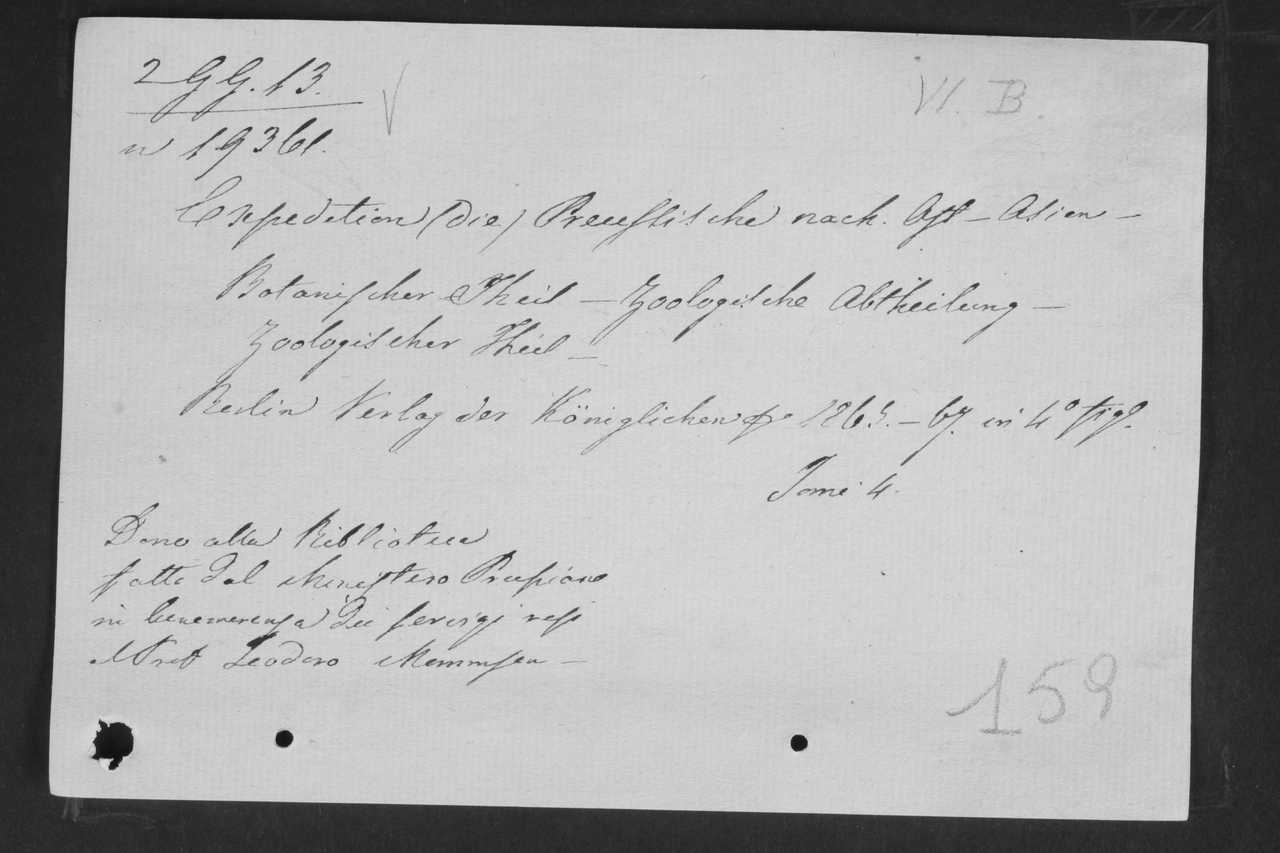 2 GG. 13.
VI. B
n 19361.
Expedition (die) Preussische nach. Ost - Asien -
Botanischer Theil - Zoologische Abtheilung -
Zoologischer Theil -
Berlin Verlag der Königlichen 1865. - 67. in 4° figt.
Tomi 4.
Dono alla Biblioteca
fatto dal Ministero Prussiano
in benemerenza dei servigi resi
Teodoro Mommsen -
159